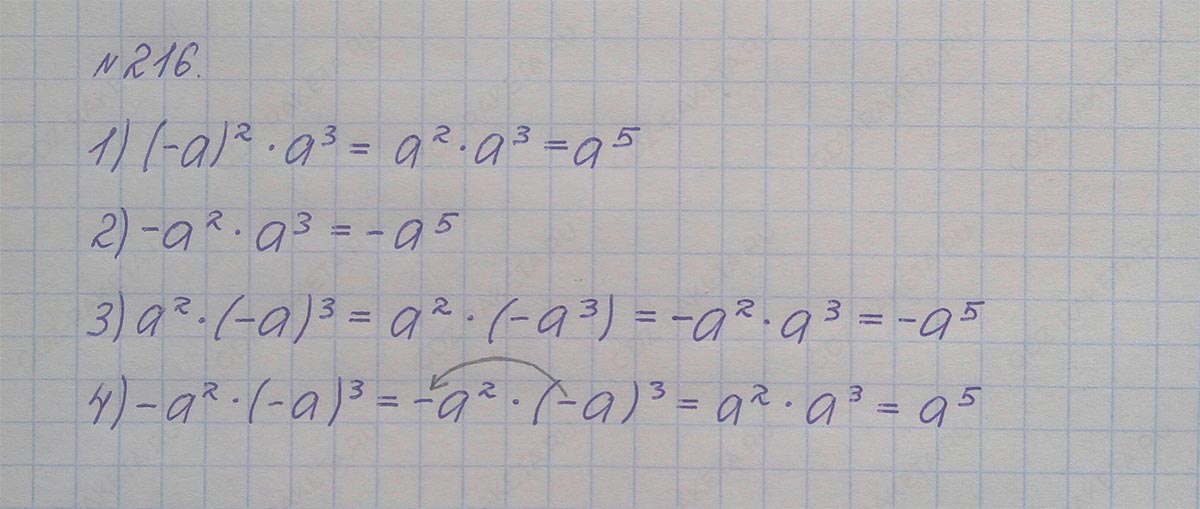 №216.
1) (-a)² · a³ = a² · a³ = a⁵
2) -a² · a³ = -a⁵
3) a² · (-a)³ = a² · (-a³) = -a² · a³ = -a⁵
4) -a² · (-a)³ = -a² · (-a)³ = a² · a³ = a⁵